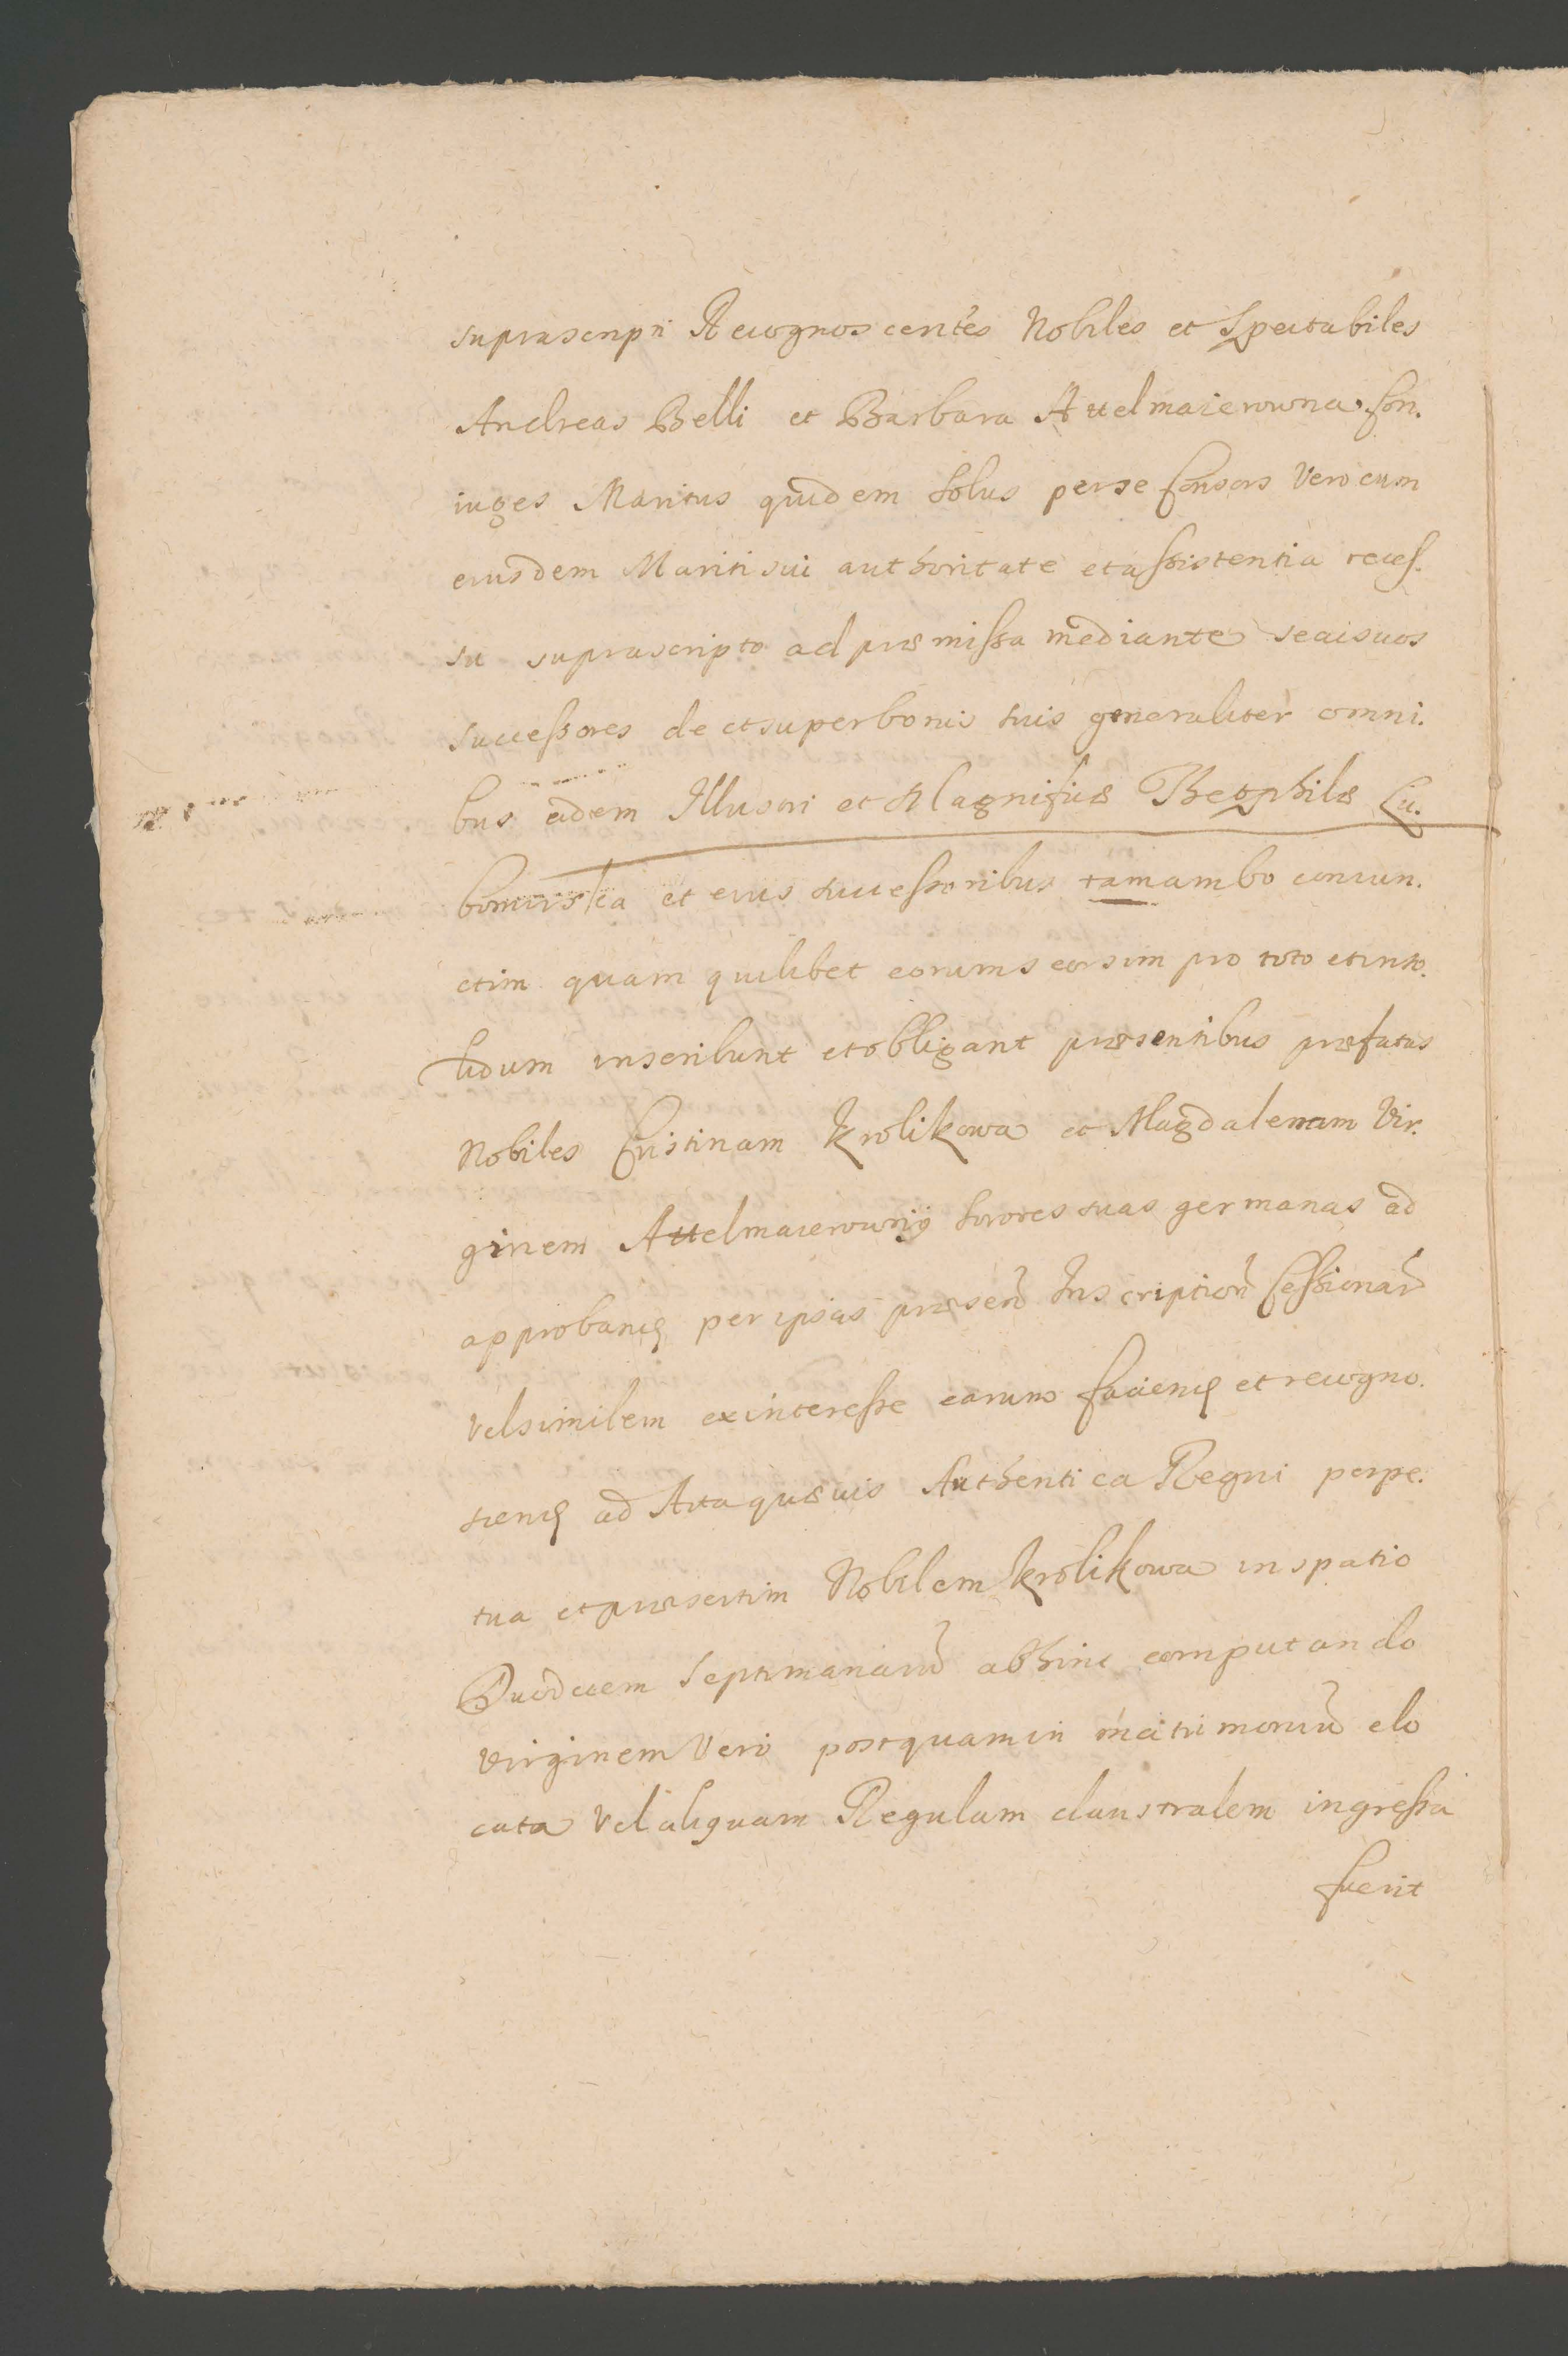 suprascripti Recognoscentes Nobiles et Spectabiles
Andreas Belli et Barbara Attelmaierowna Con.
iuges Maritus quidem solus per se Consors vero cum
eiusdem Mariti sui authoritate et assistentia reces.
su suprascripto ad præmissa mediante se ac suos
successores de et super bonis suis generaliter omni.
bus eidem Illustri et Magnificæ Theophilæ Lu.
bomirska et eius successoribus tam ambo coniun.
ctim quam quilibet eorum seorsim pro toto et inso.
lidum inscribunt et obligant præsentibus præfatas
Nobiles Cristinam Krolikowa et Magdalenam Vir.
ginem Attelmaierowny sorores suas germanas ad
approband per ipsas præsen Inscription Cessionar
vel similem ex interesse earum faciend et recogno.
scend ad Acta quævis Authentica Regni perpe.
tua et præsertim Nobilem Krolikowa in spatio
Duodecem septimanarū abhinc computando
virginem vero postquam in matrimoniū elo
cata vel aliquam Regulam claustralem ingressa
fuerit